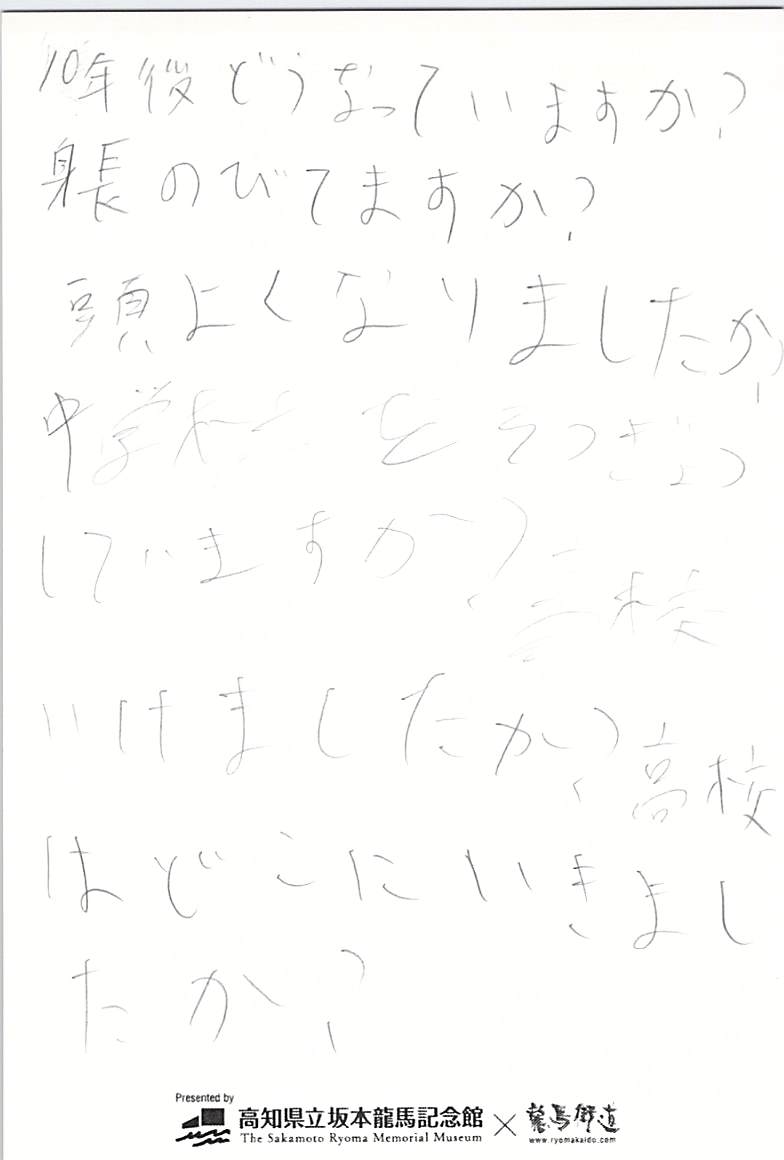 10年後どうなっていますか?
身長のびてますか?
頭よくなりましたか?
中学校をそつぎょう
していますか?高校
いけましたか?高校
はどこにいきまし
たか?
Presented by
高知県立坂本龍馬記念館
The Sakamoto Ryoma Memorial Museum
×
龍馬街道
www.ryomakaido.com